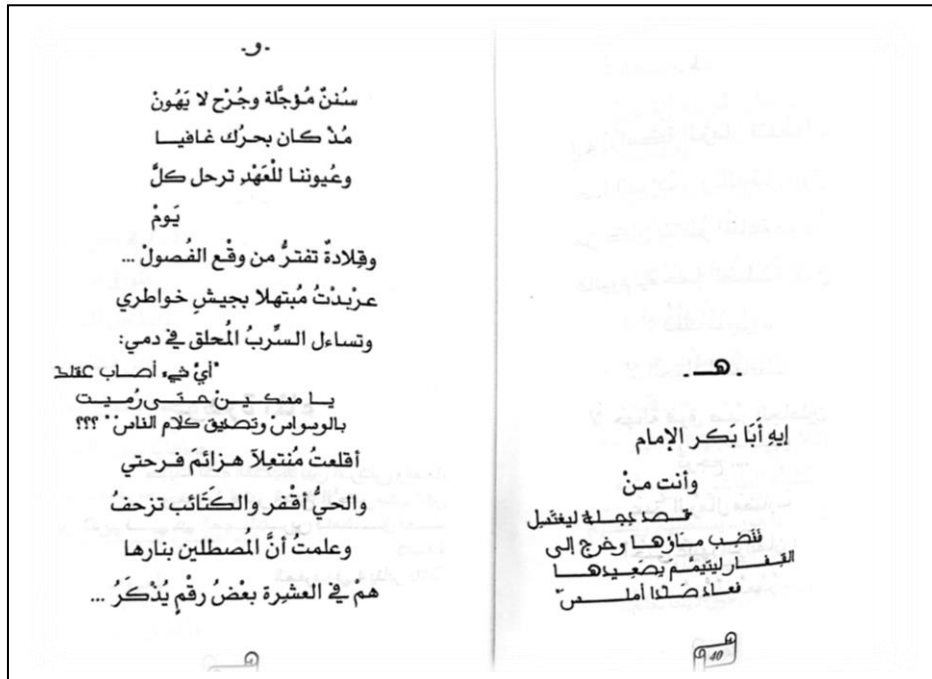 - هـ -
إيهِ أبَا بَكر الإمام
وأنت منْ
"قـصد دجـلـة ليغتسِل
فنَضِب مـاؤهـا وخرج إلـى
القِفـار ليتيمّـم بصَعِيدهـا
فعـاد صَـلدًا أملـس"
10
-و-
سُننٌ مُؤجَّلة وجُرْح لا يَهُونْ
مُذْ كان بحرُك غافيـا
وعُيوننا للْعَهْدِ ترحل كلَّ
يَومْ
وقِلادةٌ تفترُّ من وقْع الفُصولْ ...
عرْبدْتُ مُبتهلا بجيشِ خواطري
وتساءل السِّربُ المُحلق في دمي:
"أيُّ شيء أصـاب عقلك
يـا مسكـيـن حـتـى رُمـيـت
بالوسواسْ وتصديق كلام الناسْ" ؟؟؟
أقلعتُ مُنتعِلاً هزائمَ فرحتي
والحيُّ أقْفر والكَتَائب تزحفُ
وعلمتُ أنَّ المُصطلين بنارها
هم في العشيرة بعْضُ رقْمٍ يُذْكَرُ ...